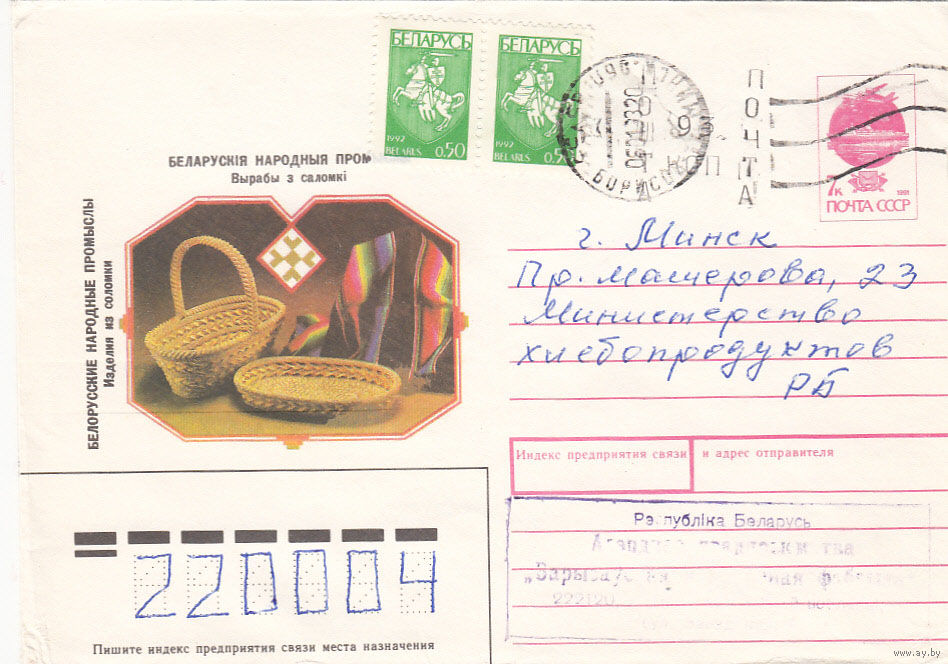 БЕЛАРУСЬ
1992
BELARUS
0.50
БЕЛАРУСЬ
1992
BELARUS
ПОЧТА
7к
1991
ПОЧТА СССР
БЕЛАРУСКІЯ НАРОДНЫЯ
Вырабы з саломкі
БЕЛОРУССКИЕ НАРОДНЫЕ ПРОМЫСЛЫ
Изделия из соломки
г. Минск
Пр. Машерова, 23
Министерство
хлебопродуктов
РБ
Индекс предприятия связи и адрес отправителя
Рэспубліка Беларусь
222120
220004
Пишите индекс предприятия связи места назначения
www.ay.by